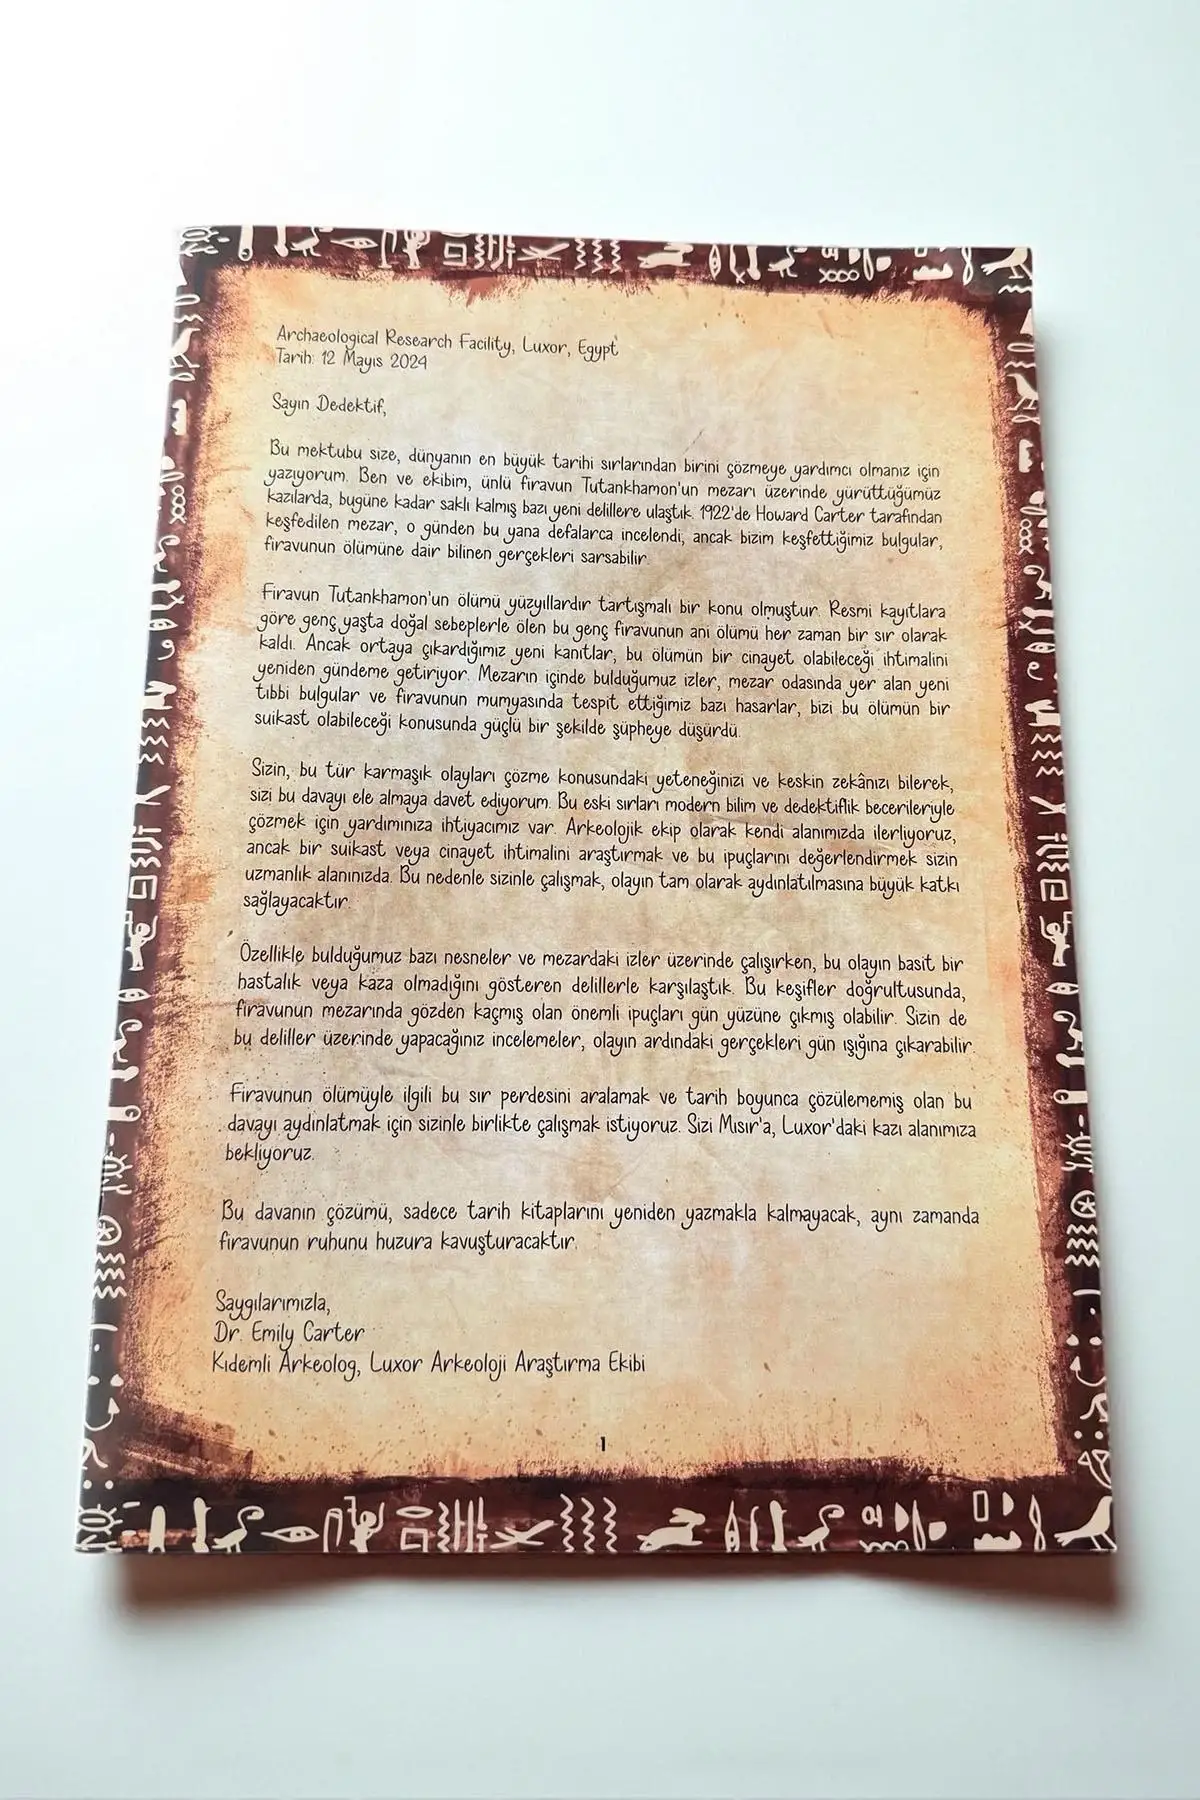 Archaeological Research Facility, Luxor, Egypt
Tarih: 12 Mayıs 2024
Sayın Dedektif,
Bu mektubu size, dünyanın en büyük tarihi sırlarından birini çözmeye yardımcı olmanız için
yazıyorum. Ben ve ekibim, ünlü firavun Tutankhamon'un mezarı üzerinde yürüttüğümüz
kazılarda, bugüne kadar saklı kalmış bazı yeni delillere ulaştık. 1922'de Howard Carter tarafından
keşfedilen mezar, o günden bu yana defalarca incelendi, ancak bizim keşfettiğimiz bulgular,
firavunun ölümüne dair bilinen gerçekleri sarsabilir.
Firavun Tutankhamon'un ölümü yüzyıllardır tartışmalı bir konu olmuştur. Resmi kayıtlara
göre genç yaşta doğal sebeplerle ölen bu genç firavunun ani ölümü her zaman bir sır olarak
kaldı. Ancak ortaya çıkardığımız yeni kanıtlar, bu ölümün bir cinayet olabileceği ihtimalini
yeniden gündeme getiriyor. Mezarın içinde bulduğumuz izler, mezar odasında yer alan yeni
tıbbi bulgular ve firavunun mumyasında tespit ettiğimiz bazı hasarlar, bizi bu ölümün bir
suikast olabileceği konusunda güçlü bir şekilde şüpheye düşürdü.
Sizin, bu tür karmaşık olayları çözme konusundaki yeteneğinizi ve keskin zekânızı bilerek,
sizi bu davayı ele almaya davet ediyorum. Bu eski sırları modern bilim ve dedektiflik becerileriyle
çözmek için yardımınıza ihtiyacımız var. Arkeolojik ekip olarak kendi alanımızda ilerliyoruz,
ancak bir suikast veya cinayet ihtimalini araştırmak ve bu ipuçlarını değerlendirmek sizin
uzmanlık alanınızda. Bu nedenle sizinle çalışmak, olayın tam olarak aydınlatılmasına büyük katkı
sağlayacaktır.
Özellikle bulduğumuz bazı nesneler ve mezardaki izler üzerinde çalışırken, bu olayın basit bir
hastalık veya kaza olmadığını gösteren delillerle karşılaştık. Bu keşifler doğrultusunda,
firavunun mezarında gözden kaçmış olan önemli ipuçları gün yüzüne çıkmış olabilir. Sizin de
bu deliller üzerinde yapacağınız incelemeler, olayın ardındaki gerçekleri gün ışığına çıkarabilir.
Firavunun ölümüyle ilgili bu sır perdesini aralamak ve tarih boyunca çözülememiş olan bu
davayı aydınlatmak için sizinle birlikte çalışmak istiyoruz. Sizi Mısır'a, Luxor'daki kazı alanımıza
bekliyoruz.
Bu davanın çözümü, sadece tarih kitaplarını yeniden yazmakla kalmayacak, aynı zamanda
firavunun ruhunu huzura kavuşturacaktır.
Saygılarımızla,
Dr. Emily Carter
Kıdemli Arkeolog, Luxor Arkeoloji Araştırma Ekibi
1